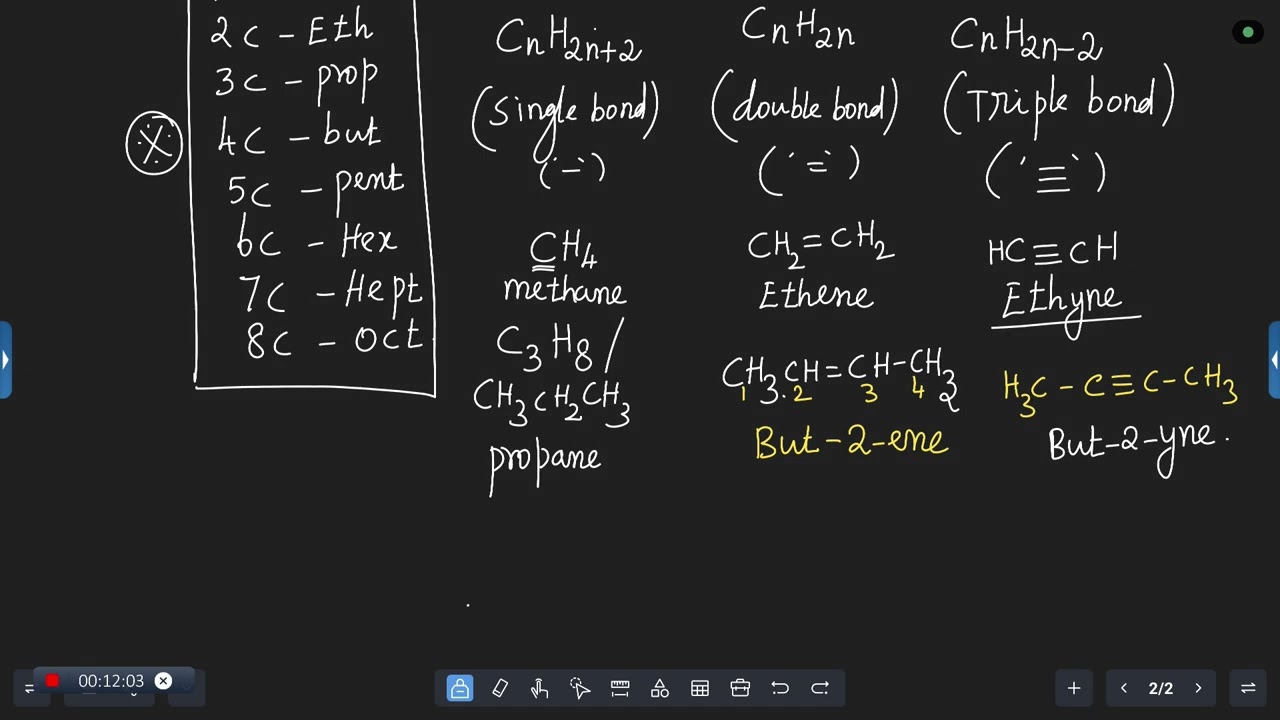 2C - Eth
3C - prop
4C - but
5C - pent
6C - Hex
7C - Hept
8C - Oct
CnH2n+2
(Single bond)
(-)
CH4
methane
C3H8/
CH3CH2CH3
propane
CnH2n
(double bond)
(=)
CH2=CH2
Ethene
CH3CH=CH-CH3
1 2 3 4 2
But-2-ene
CnH2n-2
(Triple bond)
(≡)
HC≡CH
Ethyne
H3C-C≡C-CH3
But-2-yne.
00:12:03
2/2